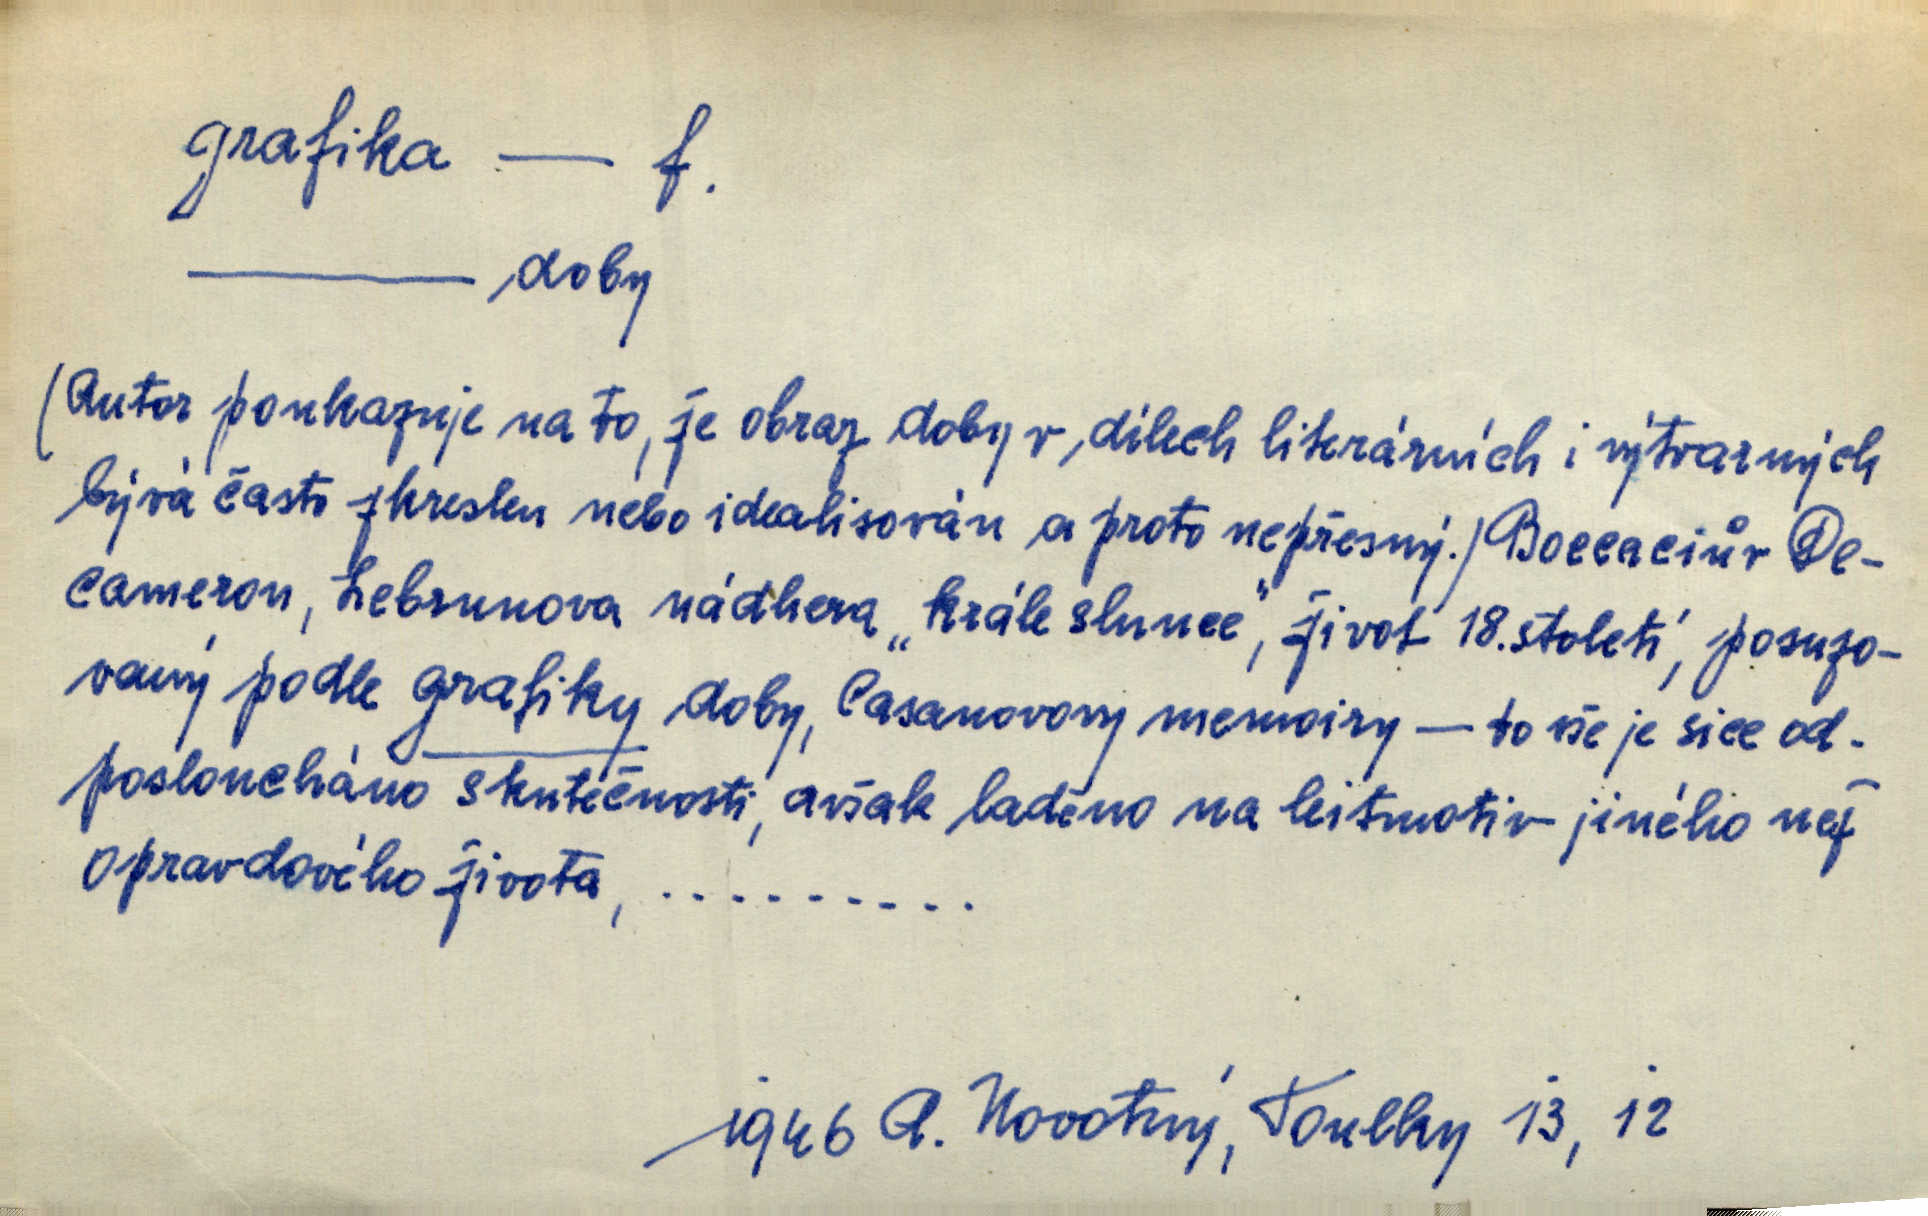 grafika — f.
——— doby
(Autor poukazuje na to, že obraz doby v dílech literárních i výtvarných
bývá často zkreslen nebo idealisován a proto nepřesný.) Boccaciův De-
cameron, Lebrunova nádhera „krále slunce", život 18. století, posuzo-
vaný podle grafiky doby, Casanovovy memoiry — to vše je sice od-
posloucháno skutečnosti, avšak laděno na leitmotiv jiného než
opravdového života, ..........
1946 A. Novotný, Toulky 13, 12